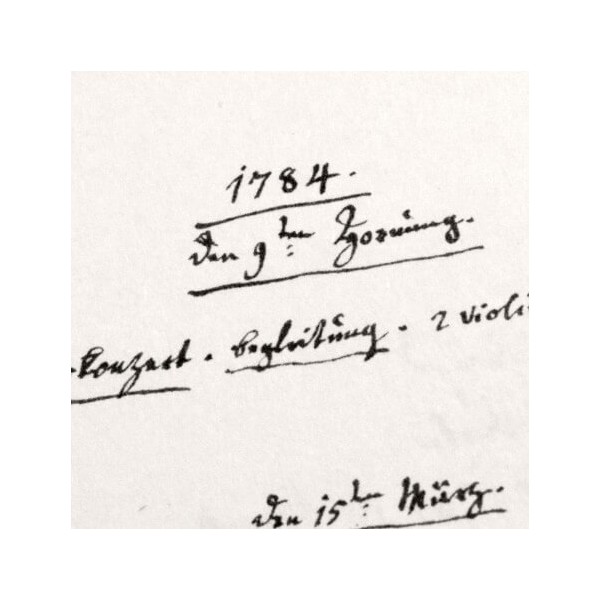 1784.
den 9ten Hornung.
-konzert. begleitung. 2 violi
den 15ten März.